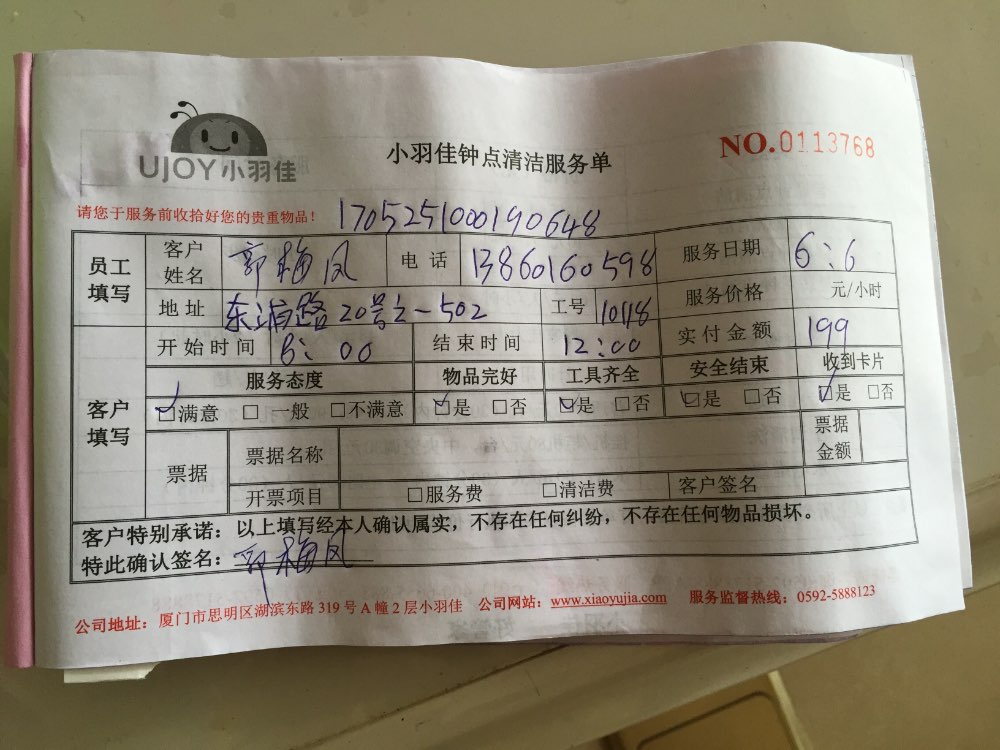 UJOY小羽佳
小羽佳钟点清洁服务单
NO.0113768
请您于服务前收拾好您的贵重物品！ 1705251000190648
员工填写 客户姓名 郭梅凤 电话 13860160598 服务日期 6:6
地址 东浦路20号之一502 工号 10118 服务价格 元/小时
开始时间 8:00 结束时间 12:00 实付金额 199
客户填写 服务态度 物品完好 工具齐全 安全结束 收到卡片
☑满意 □一般 □不满意 ☑是 □否 ☑是 □否 ☑是 □否 ☑是 □否
票据 票据名称 票据金额
开票项目 □服务费 □清洁费 客户签名
客户特别承诺：以上填写经本人确认属实，不存在任何纠纷，不存在任何物品损坏。
特此确认签名：郭梅凤
公司地址：厦门市思明区湖滨东路319号A幢2层小羽佳 公司网站：www.xiaoyujia.com 服务监督热线：0592-5888123